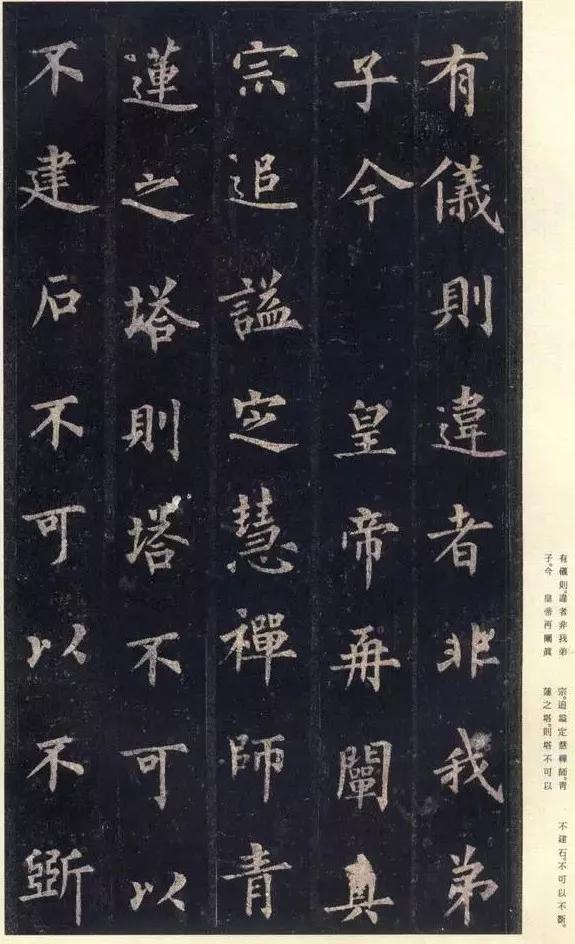 有儀則違者非我弟
子今 皇帝再闡真
宗追謚定慧禪師青
蓮之塔則塔不可以
不建石不可以不斵
有儀則。違者非我弟
子。今 皇帝再闡眞
宗。追謚定慧禪師。青
蓮之塔。則塔不可以
不建。石。不可以不斵。